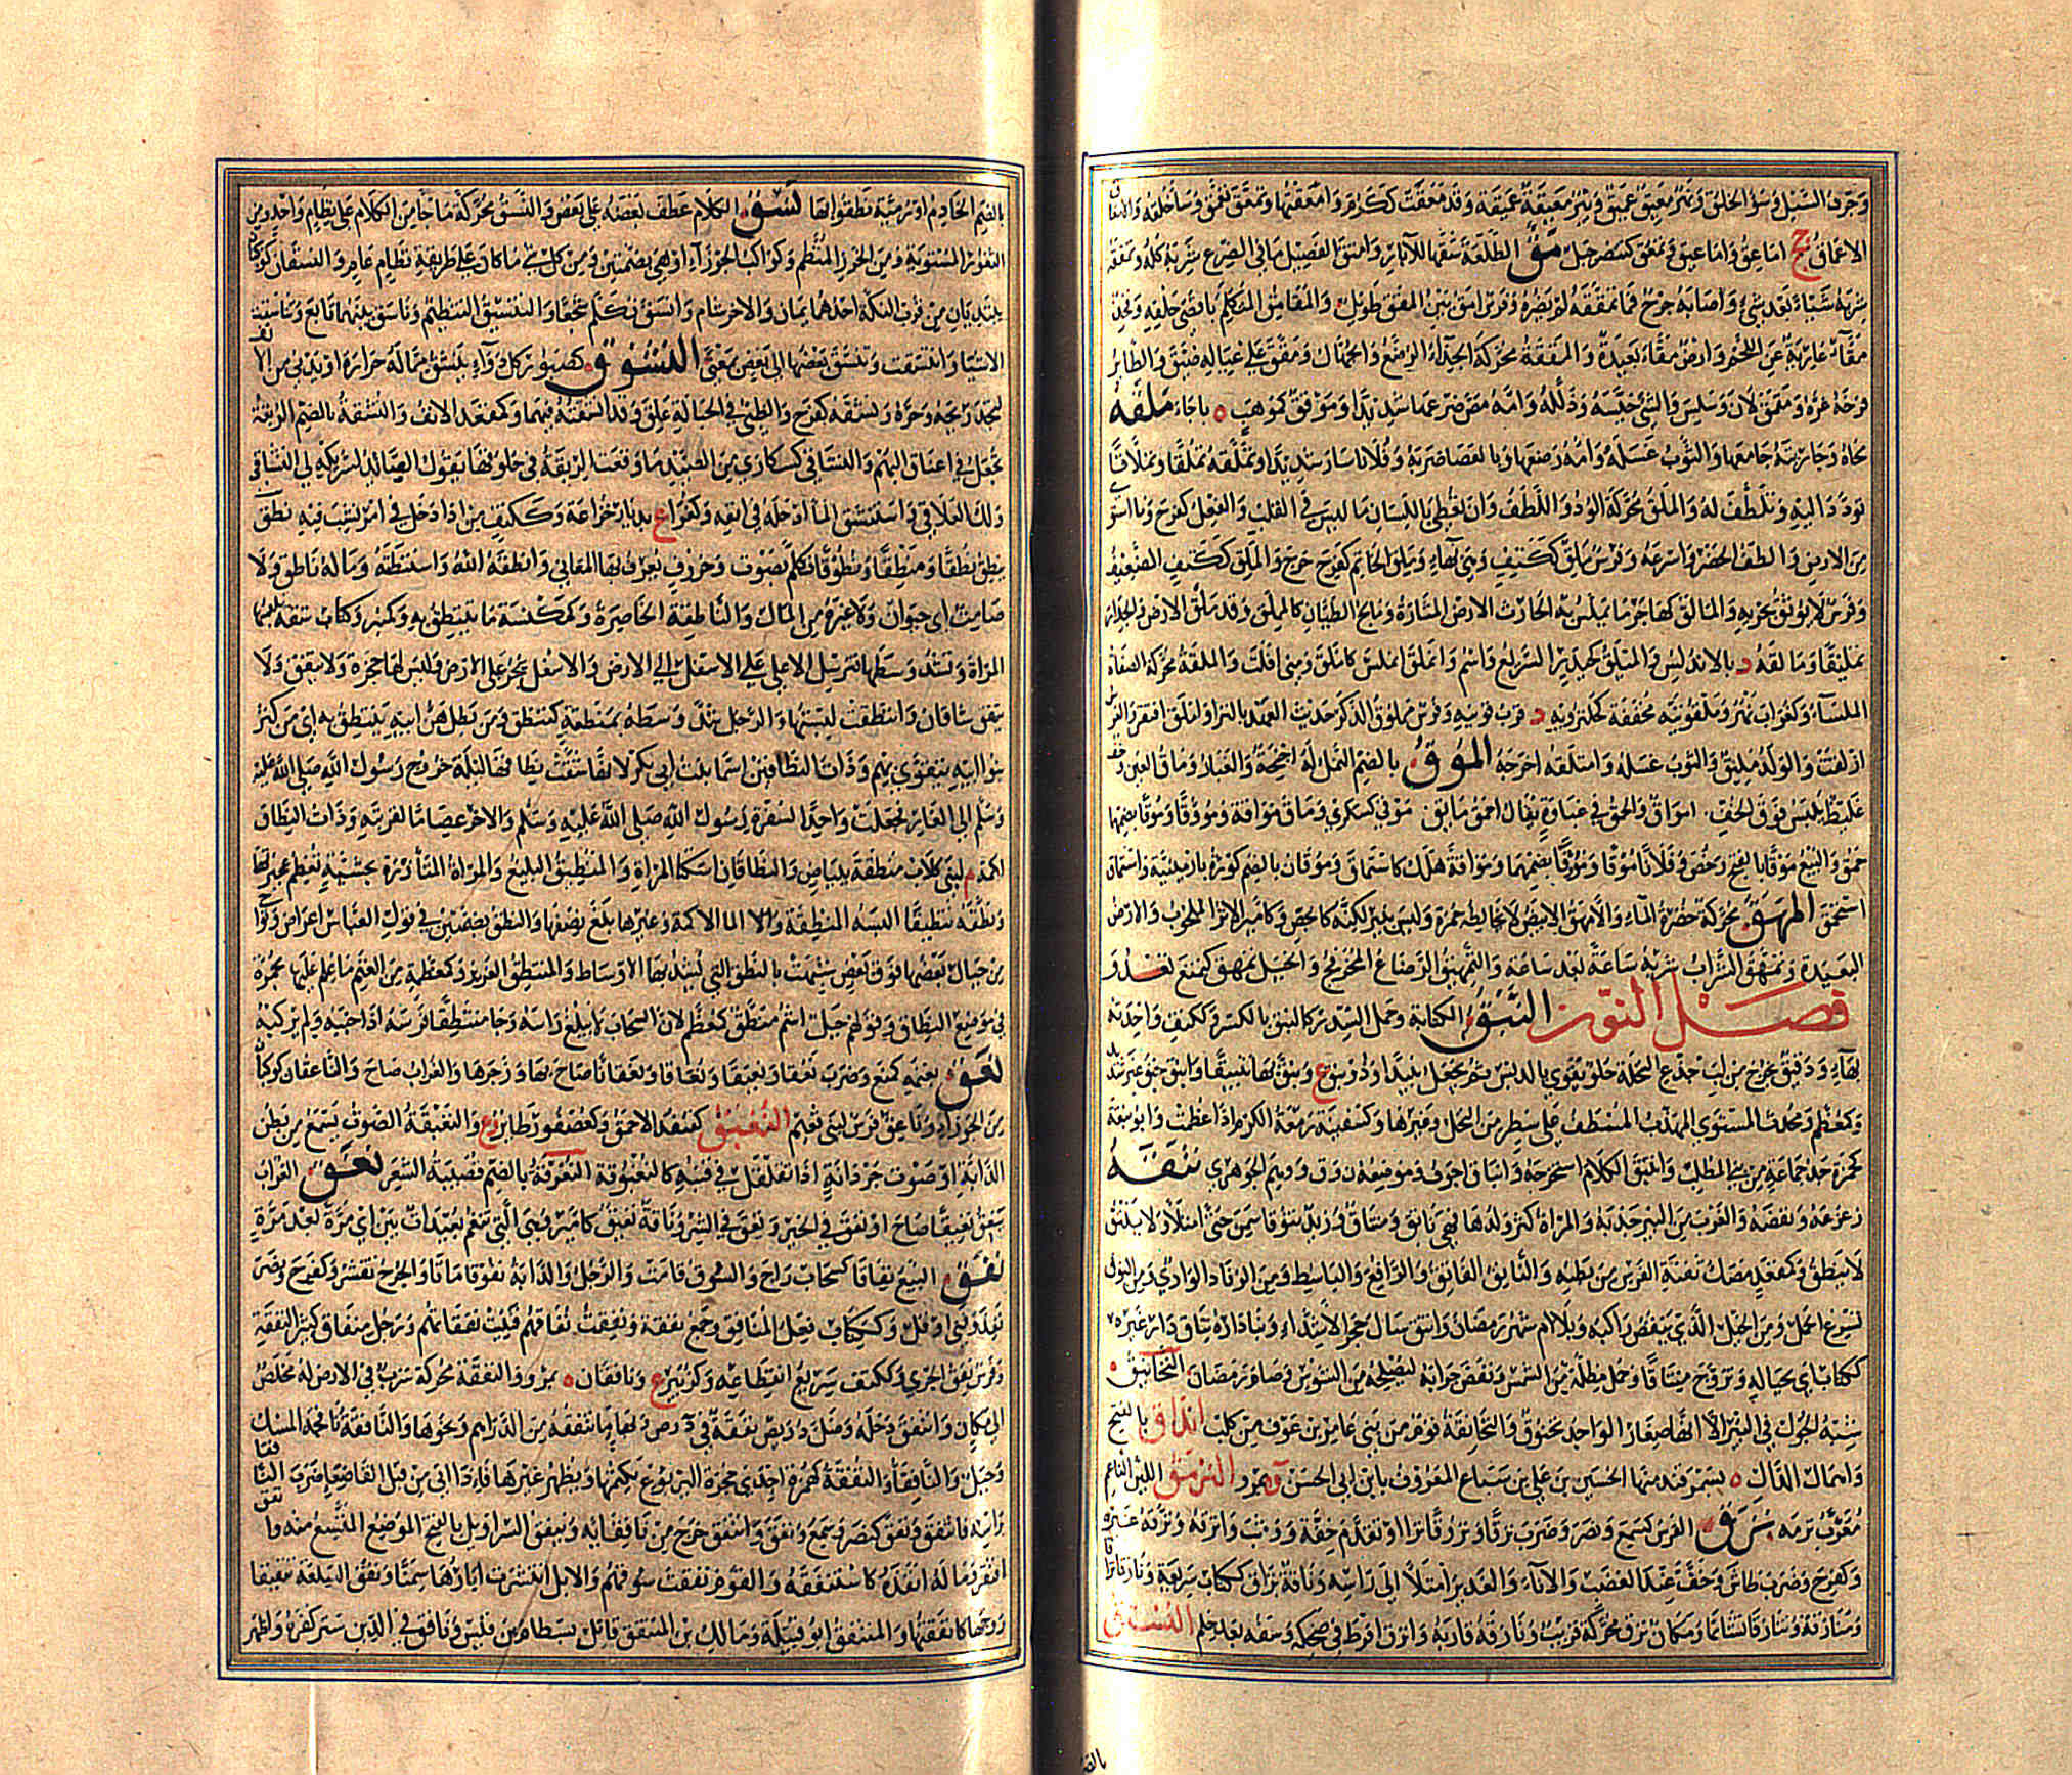 وجرف السيل وسوء الخلق ونهر معيق عميق وبئر معيقة عميقة وقد معقت ككرم وامعقتها وتمعق تعمق وساء خلقه والامعاق
الاعماق ج اماعق واماعيق ومعق كنصر جبل مق الطلعة شقها للابار وامتق الفصيل ما في الضرع شربه كله وتمققه
شربه شيا بعد شي واصابه جرح فما تمققه لم يضره وفرس اشق بين المقق طويل والمقامق المتكلم باقصى حلقه وفخذ
مقاء عارية عن اللحم وارض مقاء بعيدة والمققة محركة الجداء الرضع والجهال ومقق على عياله ضيق والطائر
فرخه غره ومقمق لان وسلس والشي خيسه وذلله وامه مص ضرعها شديدا وموقق كموهب ه باجا ملقه
محاه وجاريته جامعها والثوب غسله وامه رضعها وبالعصا ضربه وفلان سار شديدا وتملقه تملقا وتملاقا
تودد اليه وتلطف له والملق محركة الود واللطف وان تعطي باللسان ما ليس في القلب والفعل كفرح وما استوى
من الارض والطف الحضر واسرعه وفرس ملق ككتف وهي بهاء وملق الخاتم كفرح حرج والملق ككتف الضعيف
وفرس لا يوثق بجريه والمالق كهاجر ما يملس به الحارث الارض المثارة ومالج الطيان كالمملق وقد ملق الارض والجدار
تمليقا ومالقة د بالاندلس والميلق كحيدر السريع واسم وانملق املس كاملق ومني افلت والملقة محركة الصفاة
الملساء وكغراب نهر وملقونية مخففة كحلزونية د قرب قونية وفرس مملوق الذكر حديث العهد بالنزا واملق افتقر والفرس
ازلقت والولد مليق والثوب غسله وامتلقه اخرجه الموق بالضم النمل له اجنحة والغبار وماق العين وخف
غليظ يلبس فوق الخف امواق والحمق في غباوة يقال احمق مايق موقى كسكرى وماق مواقة ومؤوقا وموقا بضمهما
حمق والبيع موقا بالفتح رخص وفلان موقا ومؤوقا بضمهما ومواقة هلك كاستماق وموقان بالضم كورة بارمينية واستماق
استحمق المهق محركة خضرة الماء والامهق الابيض لا يخالطه حمرة وليس بنير لكنه كالجص وكامير الاثر الملحوب والارض
البعيدة وتمهق الشراب شربه ساعة بعد ساعة والتمهيق الرضاع المخرفج والخيل تمهق كتمنع تعدو
فصل النون النبق الكتابة وحمل السدر كالنبق بالكسر وككتف واحدته
بهاء ودقيق يخرج من لب جذع النخلة حلو يقوى بالدبس ثم يجعل نبيذا وذو نبق ع ونبق بها تنبيقا وانبق حبق غير شديد
وكمعظم ومحدث المستوي المهذب المصطف على سطر من النخل وغيرها وكسفينة زمعة الكرم اذا عظمت وابو نبقة
كحمزة جد جماعة من بني المطلب وانتبق الكلام استخرجه وانباق اجوف وموضعه ن وق ووهم الجوهري نتقه
زعزعه ونفضه والغرب من البير جذبه والمراة كثر ولدها فهي ناتق ومنتاق وزيد نتوقا سمن حتى امتلا ولا ينتق
لا ينطق وكمقعد مصك ثفنة الفرس من بطنه والناتق الفاتق والرافع والباسط ومن الزناد الواري ومن النوق
تسرع الحمل ومن الخيل الذي ينفض راكبه وبلا لام شهر رمضان وانتق شال حجر الاشداء وبنا داره نتاق دار غيره
ككتاب اي بحياله وتزوج منتاقا وحمل مظلة من الشمس ونفض جرابه ليصلحه من السوس وصام رمضان النخانيق
شبه الجوك في البير الا انها صغار الواحد نخنوق والنخانقة نوف من بني عامر بن عوف من كلب انداق بالفتح
واهمال الدال ه بسمرقند منها الحسين بن علي بن سباع المعروف بابن ابي الحسن وه بمرو النرمق اللين الناعم
معرب نرمه نزق الفرس كسمع ونصر وضرب نزقا ونزوقا نزا او تقدم خفة ووثب وانزقه ونزقه غيره
وكفرح وضرب طاش وخف عند الغضب والاناء والغدير امتلا الى راسه وناقة نزاق ككتاب سريعة ونازقا نزاقا
ومنازقة وتنازقا تشاتما ومكان نزق محركة قريب ونازقه قاربه وانزق افرط في ضحكه وسفه بعد حلم النستق
بالضم الخادم او رومية نطقوا بها نسق الكلام عطف بعضه على بعض والنسق محركة ما جا من الكلام على نظام واحد ومن
الثغور المستوية ومن الخرز المنتظم وكواكب الجوزاء او هي بضمتين ومن كل شي ما كان على طريقة نظام عام والنسقان كوكبان
يبتديان من قرب الفكة احدهما يمان والاخر شام وانسق تكلم سجعا والتنسيق التنظيم وناسق بينهما تابع وتناسقت
الاشيا وانتسقت وتنسق بعضها الى بعض بمعنى النشوق كصبور كل دواء ينشق مما له حرارة او يدني من الانف
لتجد ريحه وحره ونشقه كفرح والظبي في الحبالة علق وقد انشقته فيهما وكمقعد الانف والنشقة بالضم الربقة
تجعل في اعناق البهم والنشاقى كسكارى من الصيد ما وقعت الربقة في حلوقها يقول الصائد لشريكه لي النشاقى
ولك العلاقى واستنشق الما ادخله في انفه وكغراب ع بديار خزاعة وككتف من اذا دخل في امر نشب فيه نطق
ينطق نطقا ومنطقا ونطوقا تكلم بصوت وحروف تعرف بها المعاني وانطقه الله واستنطقه وما له ناطق ولا
صامت اي حيوان ولا غيره من المال والناطقة الخاصرة وكمكنسة ما ينتطق به وكمنبر وكتاب شقة تلبسها
المراة وتشد وسطها فترسل الاعلى على الاسفل الى الارض والاسفل ينجر على الارض وليس لها حجزة ولا نيفق ولا
ساقان وانتطقت لبستها والرجل شد وسطه بمنطقة كتنطق ومن يطل هن ابيه ينتطق به اي من كثر
بنو ابيه يتقوى بهم وذات النطاقين اسما بنت ابي بكر لانها شقت نطاقها ليلة خروج رسول الله صلى الله عليه
وسلم الى الغار فجعلت واحدا لسفرة رسول الله صلى الله عليه وسلم والاخر عصاما لقربته وذات النطاق
اكمة م لبني كلاب منطقة ببياض والنطاقان اسكتا المراة والمنطيق البليغ والمراة المتأزرة بحشية تعظم بها عجيزتها
ونطقه تنطيقا البسه المنطقة والا الما الاكمة وغيرها بلغ نصفها والنطق بضمتين في قول العباس اعراض ونواح
من جبال بعضها فوق بعض شبهت بالنطق التي يشد بها الاوساط والمنتطق العزيز وكمعظمة من الغنم ما علم عليها بحمرة
في موضع النطاق وقولهم جبل اشم منطق كمعظم لان السحاب لا يبلغ راسه وجا منتطقا فرسه اذا جنبه ولم يركبه
نعق بغنمه كمنع وضرب نعقا ونعيقا ونعاقا ونعقانا صاح بها وزجرها والغراب صاح والناعقان كوكبان
من الجوزاء وناعق فرس لبني فقيم النغبق كقنفذ الاحمق وكعصفور طائر وع والنغبقة الصوت يسمع من بطن
الدابة او صوت جردانه اذا تقلقل في قنبه كالنغبوقة النغرقة بالضم قصيبة الشعر نغق الغراب
ينغق نغيقا صاح او نغق في الخير ونعق في الشر وناقة نغيق كامير وهي التي تبغم بعيدات بين اي مرة بعد مرة
نفق البيع نفاقا كسحاب راج والسوق قامت والرجل والدابة نفوقا ماتا والجرح تقشر وكفرح ونصر
نفد وفني او قل وككتاب فعل المنافق وجمع نفقة ونفقت نفاقهم فنيت نفقاتهم ورجل منفاق كثير النفقة
وفرس نفق الجري ككتف سريع انقطاعه وكزبير ع ونافقان ه بمرو والنفقة محركة سرب في الارض له مخلص
الى مكان وانتفق دخله ونفقة ما تنفقه من الدراهم ونحوها والنافقة نافجة المسك
وجبل والنافقاء والنفقة كهمزة احدى جحرة اليربوع يكتمها ويظهر غيرها فاذا اتي من قبل القاصعا ضرب النافقا
براسه فانتفق ونفق كنصر وسمع ونفق وانتفق خرج من نافقائه ونيفق السراويل بالفتح الموضع المتسع منه وانفق
افتقر وماله انفده كاستنفقه والقوم نفقت سوقهم والابل انتشرت اوبارها سمنا ونفق السلعة تنفيقا
روجها كانفقها والمنتفق ابو قبيلة ومالك بن المنتفق قاتل بسطام بن قيس ونافق في الدين ستر كفره واظهر